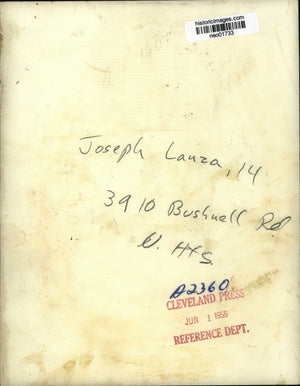 historicimages.com
neo01733
Joseph Lanza, 14
3910 Bushnell Rd
U. Hts
A2360
CLEVELAND PRESS
JUN 1 1955
REFERENCE DEPT.